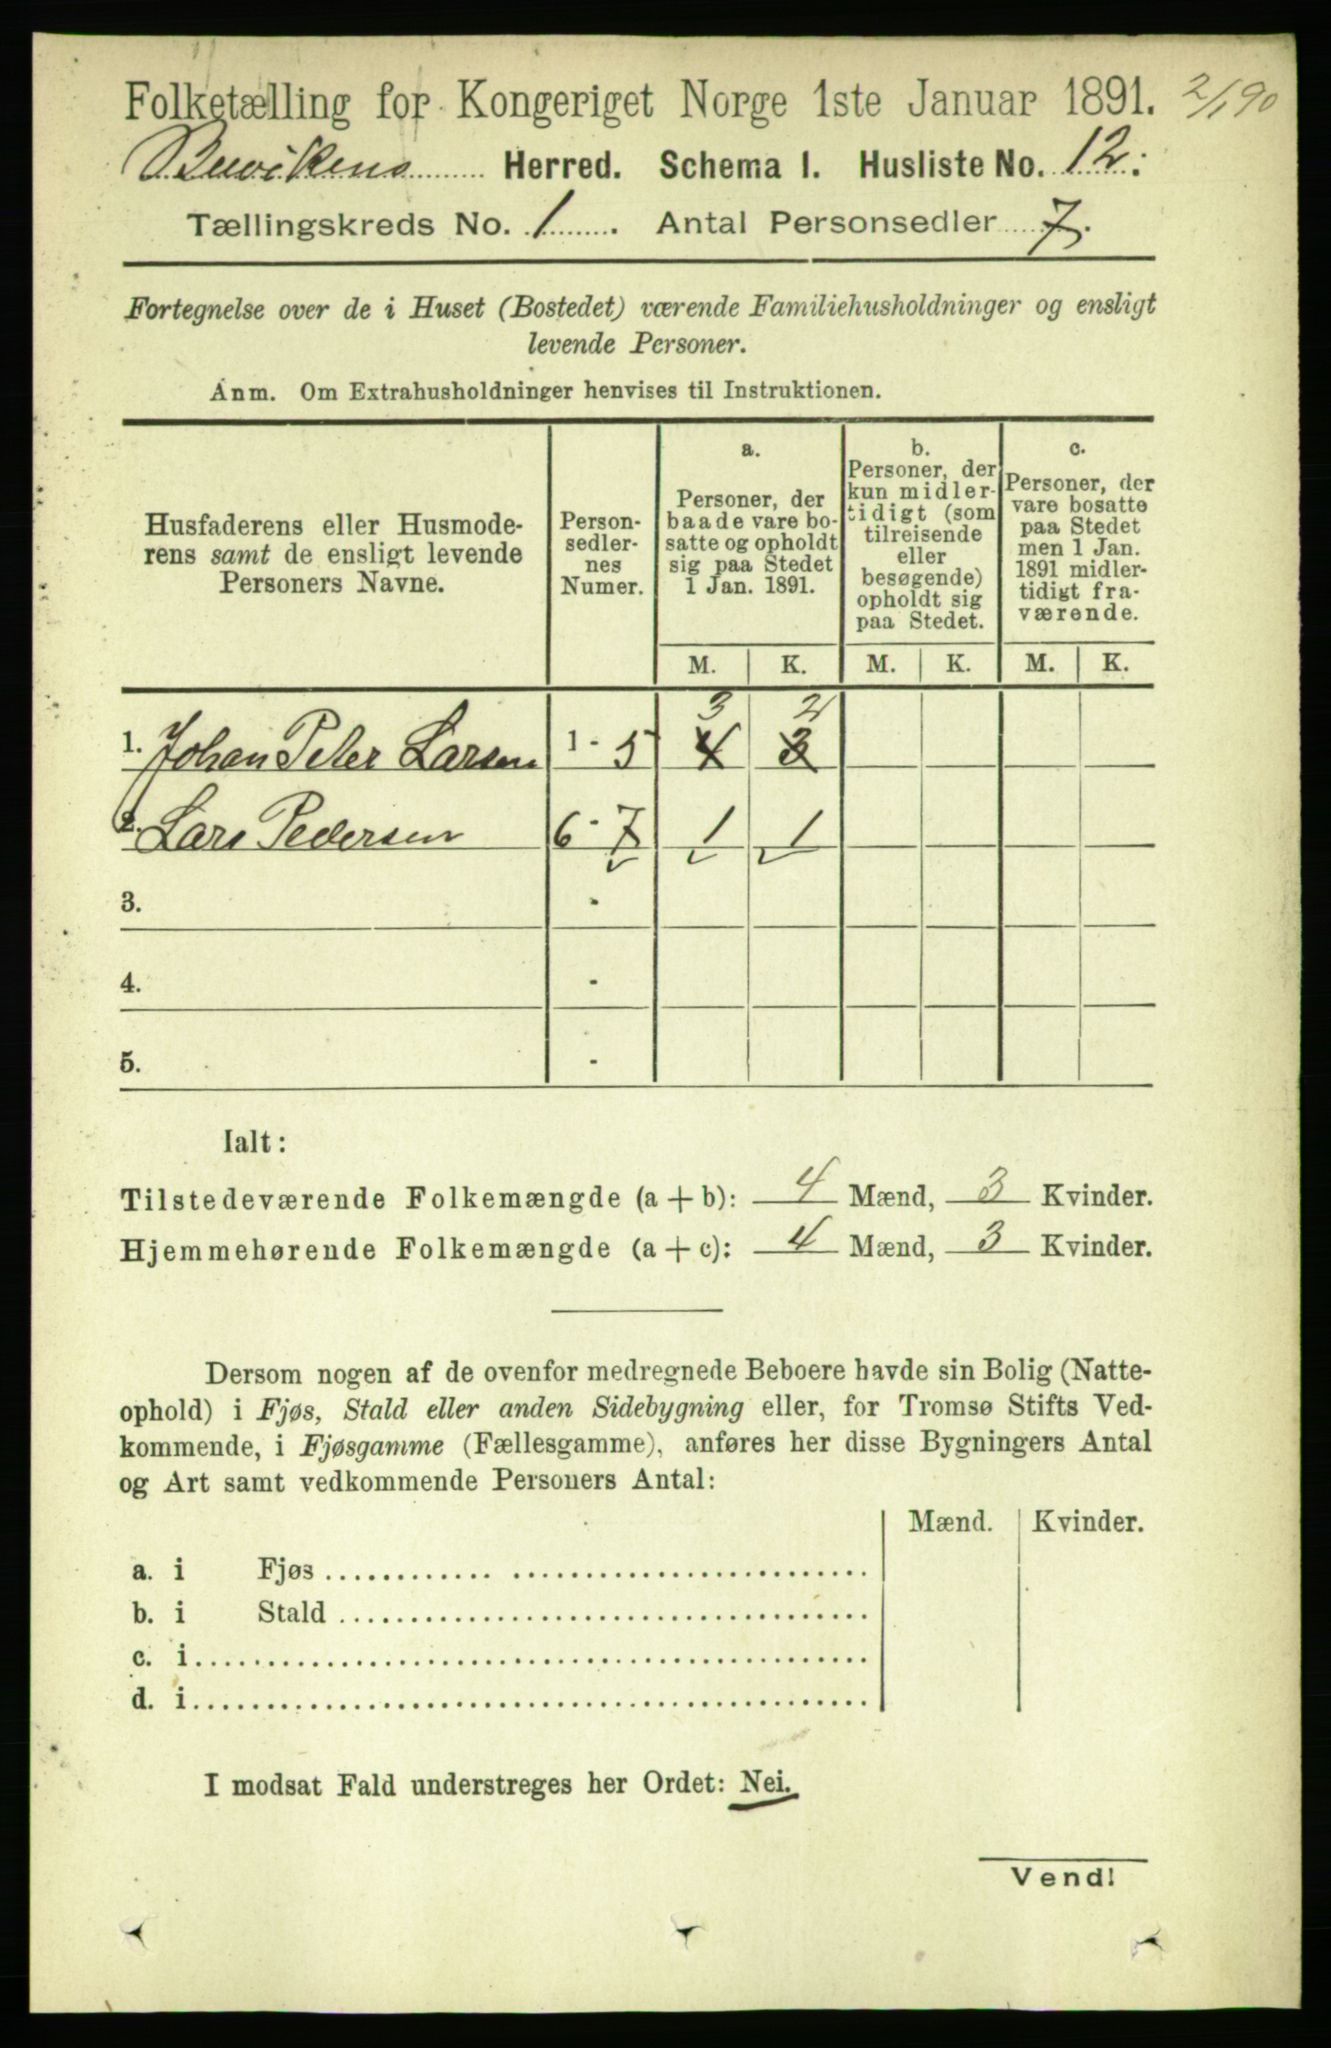 Folketælling for Kongeriget Norge 1ste Januar 1891. 2/190
Buvikens Herred. Schema 1. Husliste No. 12.
Tællingskreds No. 1. Antal Personsedler 7.
Fortegnelse over de i Huset (Bostedet) værende Familiehusholdninger og ensligt
levende Personer.
Anm. Om Extrahusholdninger henvises til Instruktionen.
Husfaderens eller Husmode-
rens samt de ensligt levende
Personers Navne.
Person-
sedler-
nes
Numer.
a.
Personer, der
baade vare bo-
satte og opholdt
sig paa Stedet
1 Jan. 1891.
b.
Personer, der
kun midler-
tidigt (som
tilreisende
eller
besøgende)
opholdt sig
paa Stedet.
c.
Personer, der
vare bosatte
paa Stedet
men 1 Jan.
1891 midler-
tidigt fra-
værende.
M. K. M. K. M. K.
3 2
1. Johan Peter Larsen 1 - 5 4 3
2. Lars Pedersen 6 - 7 1 1
3. -
4. -
5. -
Ialt:
Tilstedeværende Folkemængde (a + b): 4 Mænd, 3 Kvinder.
Hjemmehørende Folkemængde (a + c): 4 Mænd, 3 Kvinder.
Dersom nogen af de ovenfor medregnede Beboere havde sin Bolig (Natte-
ophold) i Fjøs, Stald eller anden Sidebygning eller, for Tromsø Stifts Ved-
kommende, i Fjøsgamme (Fællesgamme), anføres her disse Bygningers Antal
og Art samt vedkommende Personers Antal:
Mænd. Kvinder.
a. i Fjøs
b. i Stald
c. i
d. i
I modsat Fald understreges her Ordet: Nei.
Vend!